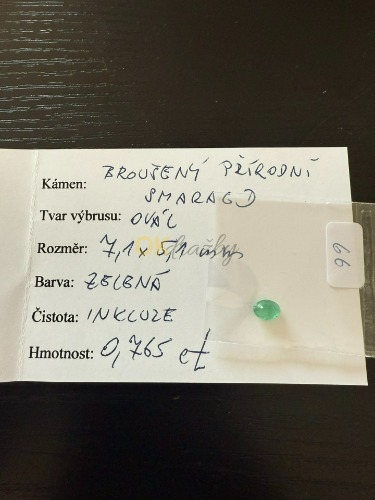 Kámen: BROUŠENÝ PŘÍRODNÍ
SMARAGD
Tvar výbrusu: OVÁL
Rozměr: 7,1 x 5,1 mm
Barva: ZELENÁ
Čistota: INKLUZE
Hmotnost: 0,765 ct
OKdražby
66